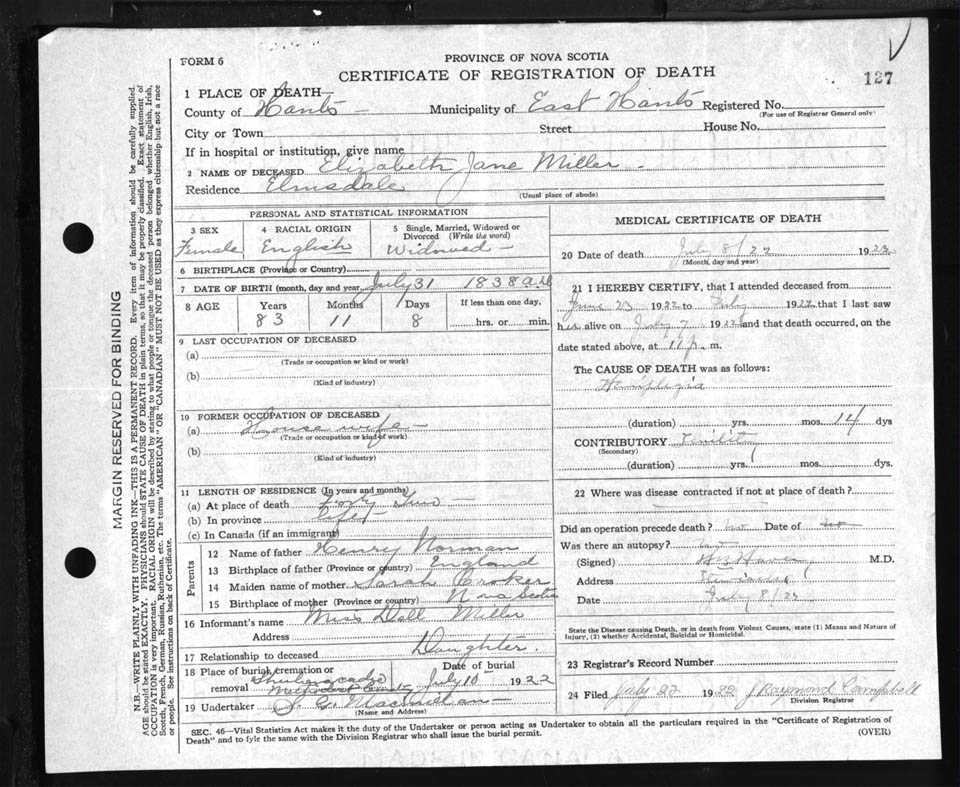 FORM 6
PROVINCE OF NOVA SCOTIA
CERTIFICATE OF REGISTRATION OF DEATH
127
1 PLACE OF DEATH
County of Hants Municipality of East Hants Registered No.
(For use of Registrar General only)
City or Town Street House No.
If in hospital or institution, give name
2 NAME OF DECEASED Elizabeth Jane Miller
Residence Elmsdale
(Usual place of abode)
PERSONAL AND STATISTICAL INFORMATION
3 SEX 4 RACIAL ORIGIN 5 Single, Married, Widowed or Divorced (Write the word)
Female English Widowed
6 BIRTHPLACE (Province or Country)
7 DATE OF BIRTH (month, day and year) July 31 1838 A.D
8 AGE Years Months Days If less than one day,
83 11 8 hrs. or min.
9 LAST OCCUPATION OF DECEASED
(a)
(Trade or occupation or kind or work)
(b)
(Kind of industry)
10 FORMER OCCUPATION OF DECEASED
(a) House wife
(Trade or occupation or kind of work)
(b)
(Kind of industry)
11 LENGTH OF RESIDENCE (In years and months)
(a) At place of death Forty
(b) In province life
(c) In Canada (if an immigrant)
Parents
12 Name of father Henry Norman
13 Birthplace of father (Province or country) England
14 Maiden name of mother Sarah Croker
15 Birthplace of mother (Province or country) Nova Scotia
16 Informant's name Miss Dell Miller
Address
17 Relationship to deceased Daughter.
18 Place of burial, cremation or removal Shubenacadie Methodist Date of burial July 10 1922
19 Undertaker
(Name and Address)
MEDICAL CERTIFICATE OF DEATH
20 Date of death July 8/22 1922
(Month, day and year)
21 I HEREBY CERTIFY, that I attended deceased from
June 23 1922 to July 1922 that I last saw
her alive on July 7 1922 and that death occurred, on the
date stated above, at 11 p. m.
The CAUSE OF DEATH was as follows:
Hemiplegia
(duration) yrs. mos. 14 dys
CONTRIBUTORY
(Secondary)
(duration) yrs. mos. dys.
22 Where was disease contracted if not at place of death?
Did an operation precede death? no Date of no
Was there an autopsy?
(Signed) M.D.
Address
Date July 8/22
State the Disease causing Death, or in death from Violent Causes, state (1) Means and Nature of
Injury, (2) whether Accidental, Suicidal or Homicidal.
23 Registrar's Record Number
24 Filed July 22 1922 J Raymond Campbell
Division Registrar
SEC. 46—Vital Statistics Act makes it the duty of the Undertaker or person acting as Undertaker to obtain all the particulars required in the "Certificate of Registration of
Death" and to fyle the same with the Division Registrar who shall issue the burial permit. (OVER)
MARGIN RESERVED FOR BINDING
N.B.—WRITE PLAINLY WITH UNFADING INK—THIS IS A PERMANENT RECORD. Every item of information should be carefully supplied.
AGE should be stated EXACTLY. PHYSICIANS should STATE CAUSE OF DEATH in plain terms, so that it may be properly classified. Exact statement of
OCCUPATION is very important. RACIAL ORIGIN will be described by stating to what people or tongue the deceased person belonged whether English, Irish,
Scotch, French, German, Russian, Ruthenian, etc. The terms "AMERICAN" or "CANADIAN" MUST NOT BE USED as they express citizenship but not a race
or people. See instructions on back of Certificate.